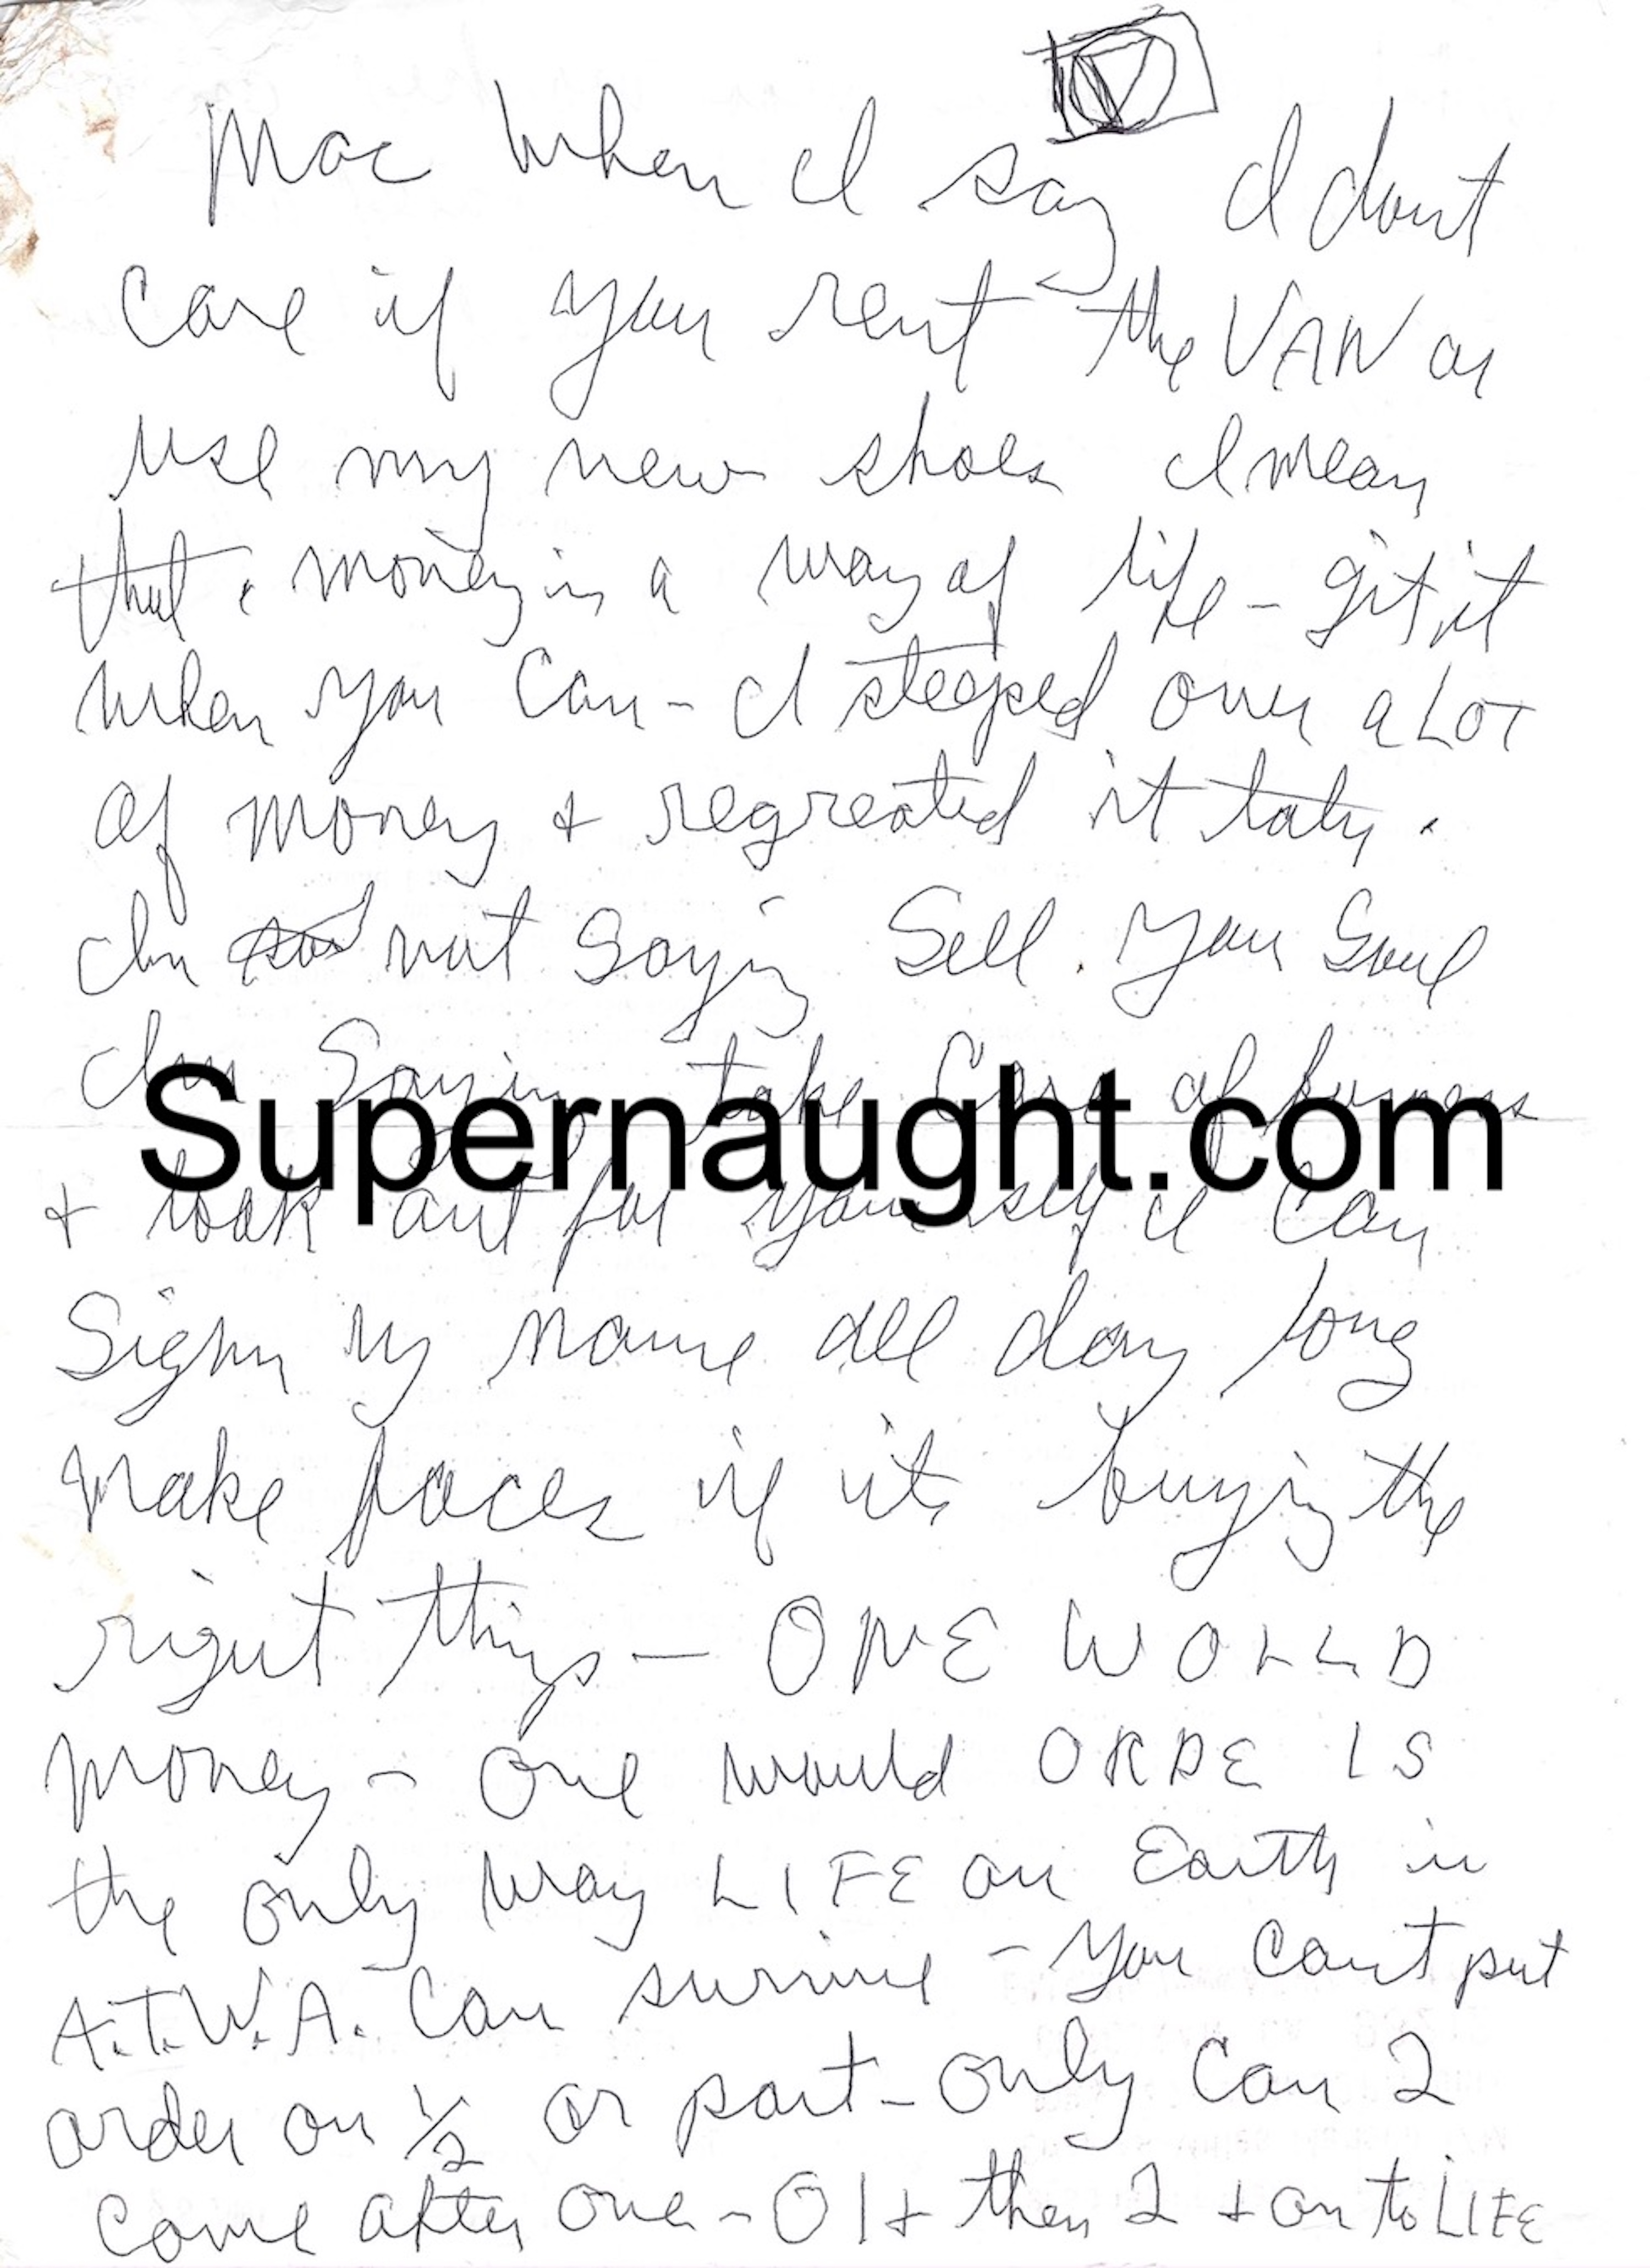 Mac when I say I dont
care if you rent the VAN or
use my new shoes I mean
that. money is a way of life - git it
when you can - I steeped over a LOT
of money & regreated it
Im not Sayin Sell. you Soul
Im Sayin take Care of
Supernaught.com
+ look out for yourself I can
Sighn my name all day long
make faces if its buying the
right things — ONE WOLLD
money - One would ORDE IS
the only way LIFE on Earth in
A.T.W.A. Can survive - You Cant put
order on 1/2 or part - only Can 2
come after one - 0 1 + then 2 + on to LIFE